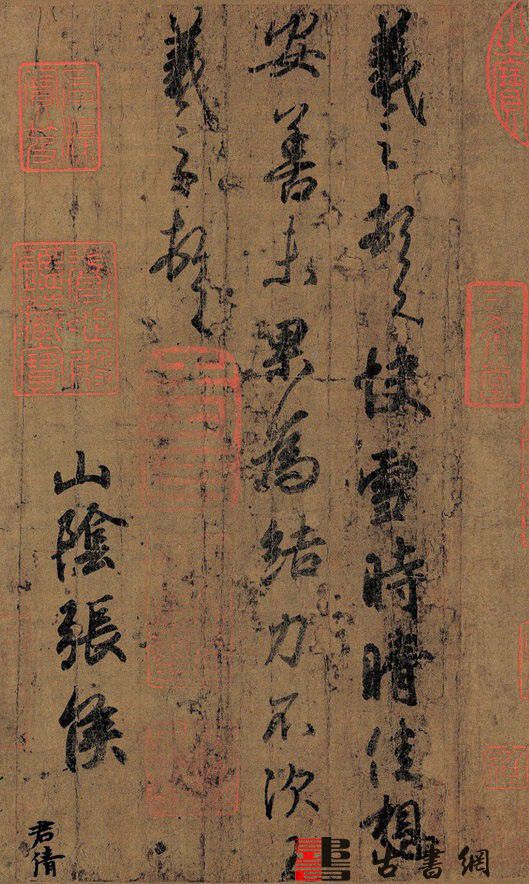 羲之頓首快雪時晴佳想
安善未果為結力不次王
羲之頓首
山陰張侯
君倩
古書網